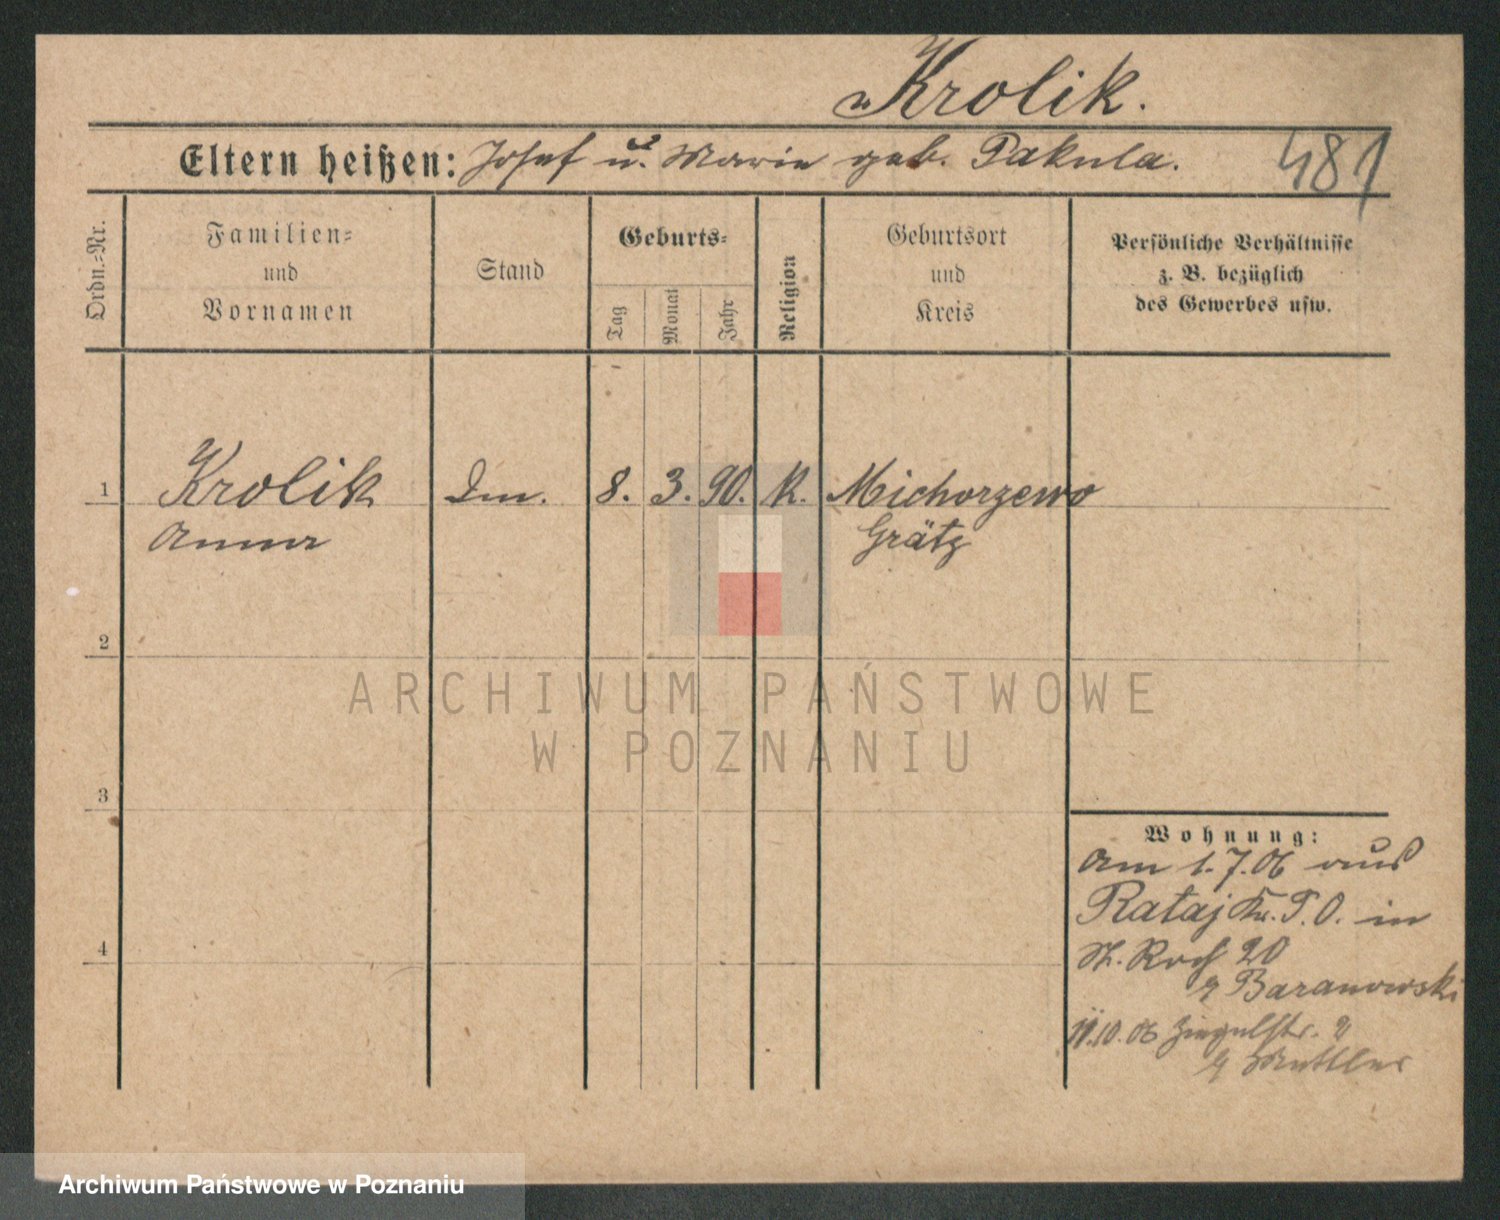 Krolik.
Eltern heißen: Josef u. Marie geb. Pakula. 481
Ordn.=Nr.
Familien=
und
Vornamen
Stand
Geburts=
Tag
Monat
Jahr
Religion
Geburtsort
und
Kreis
Persönliche Verhältnisse
z. B. bezüglich
des Gewerbes usw.
1 Krolik 8. 3. 90. K. Michorzewo
Anna Grätz
2
ARCHIWUM PAŃSTWOWE
W POZNANIU
3
Wohnung:
am 1.7.06 aus
Rataj Kr. P.O. in
St. Roch 20
Baranowski
10.06 Ziegelstr. 2
4
Archiwum Państwowe w Poznaniu